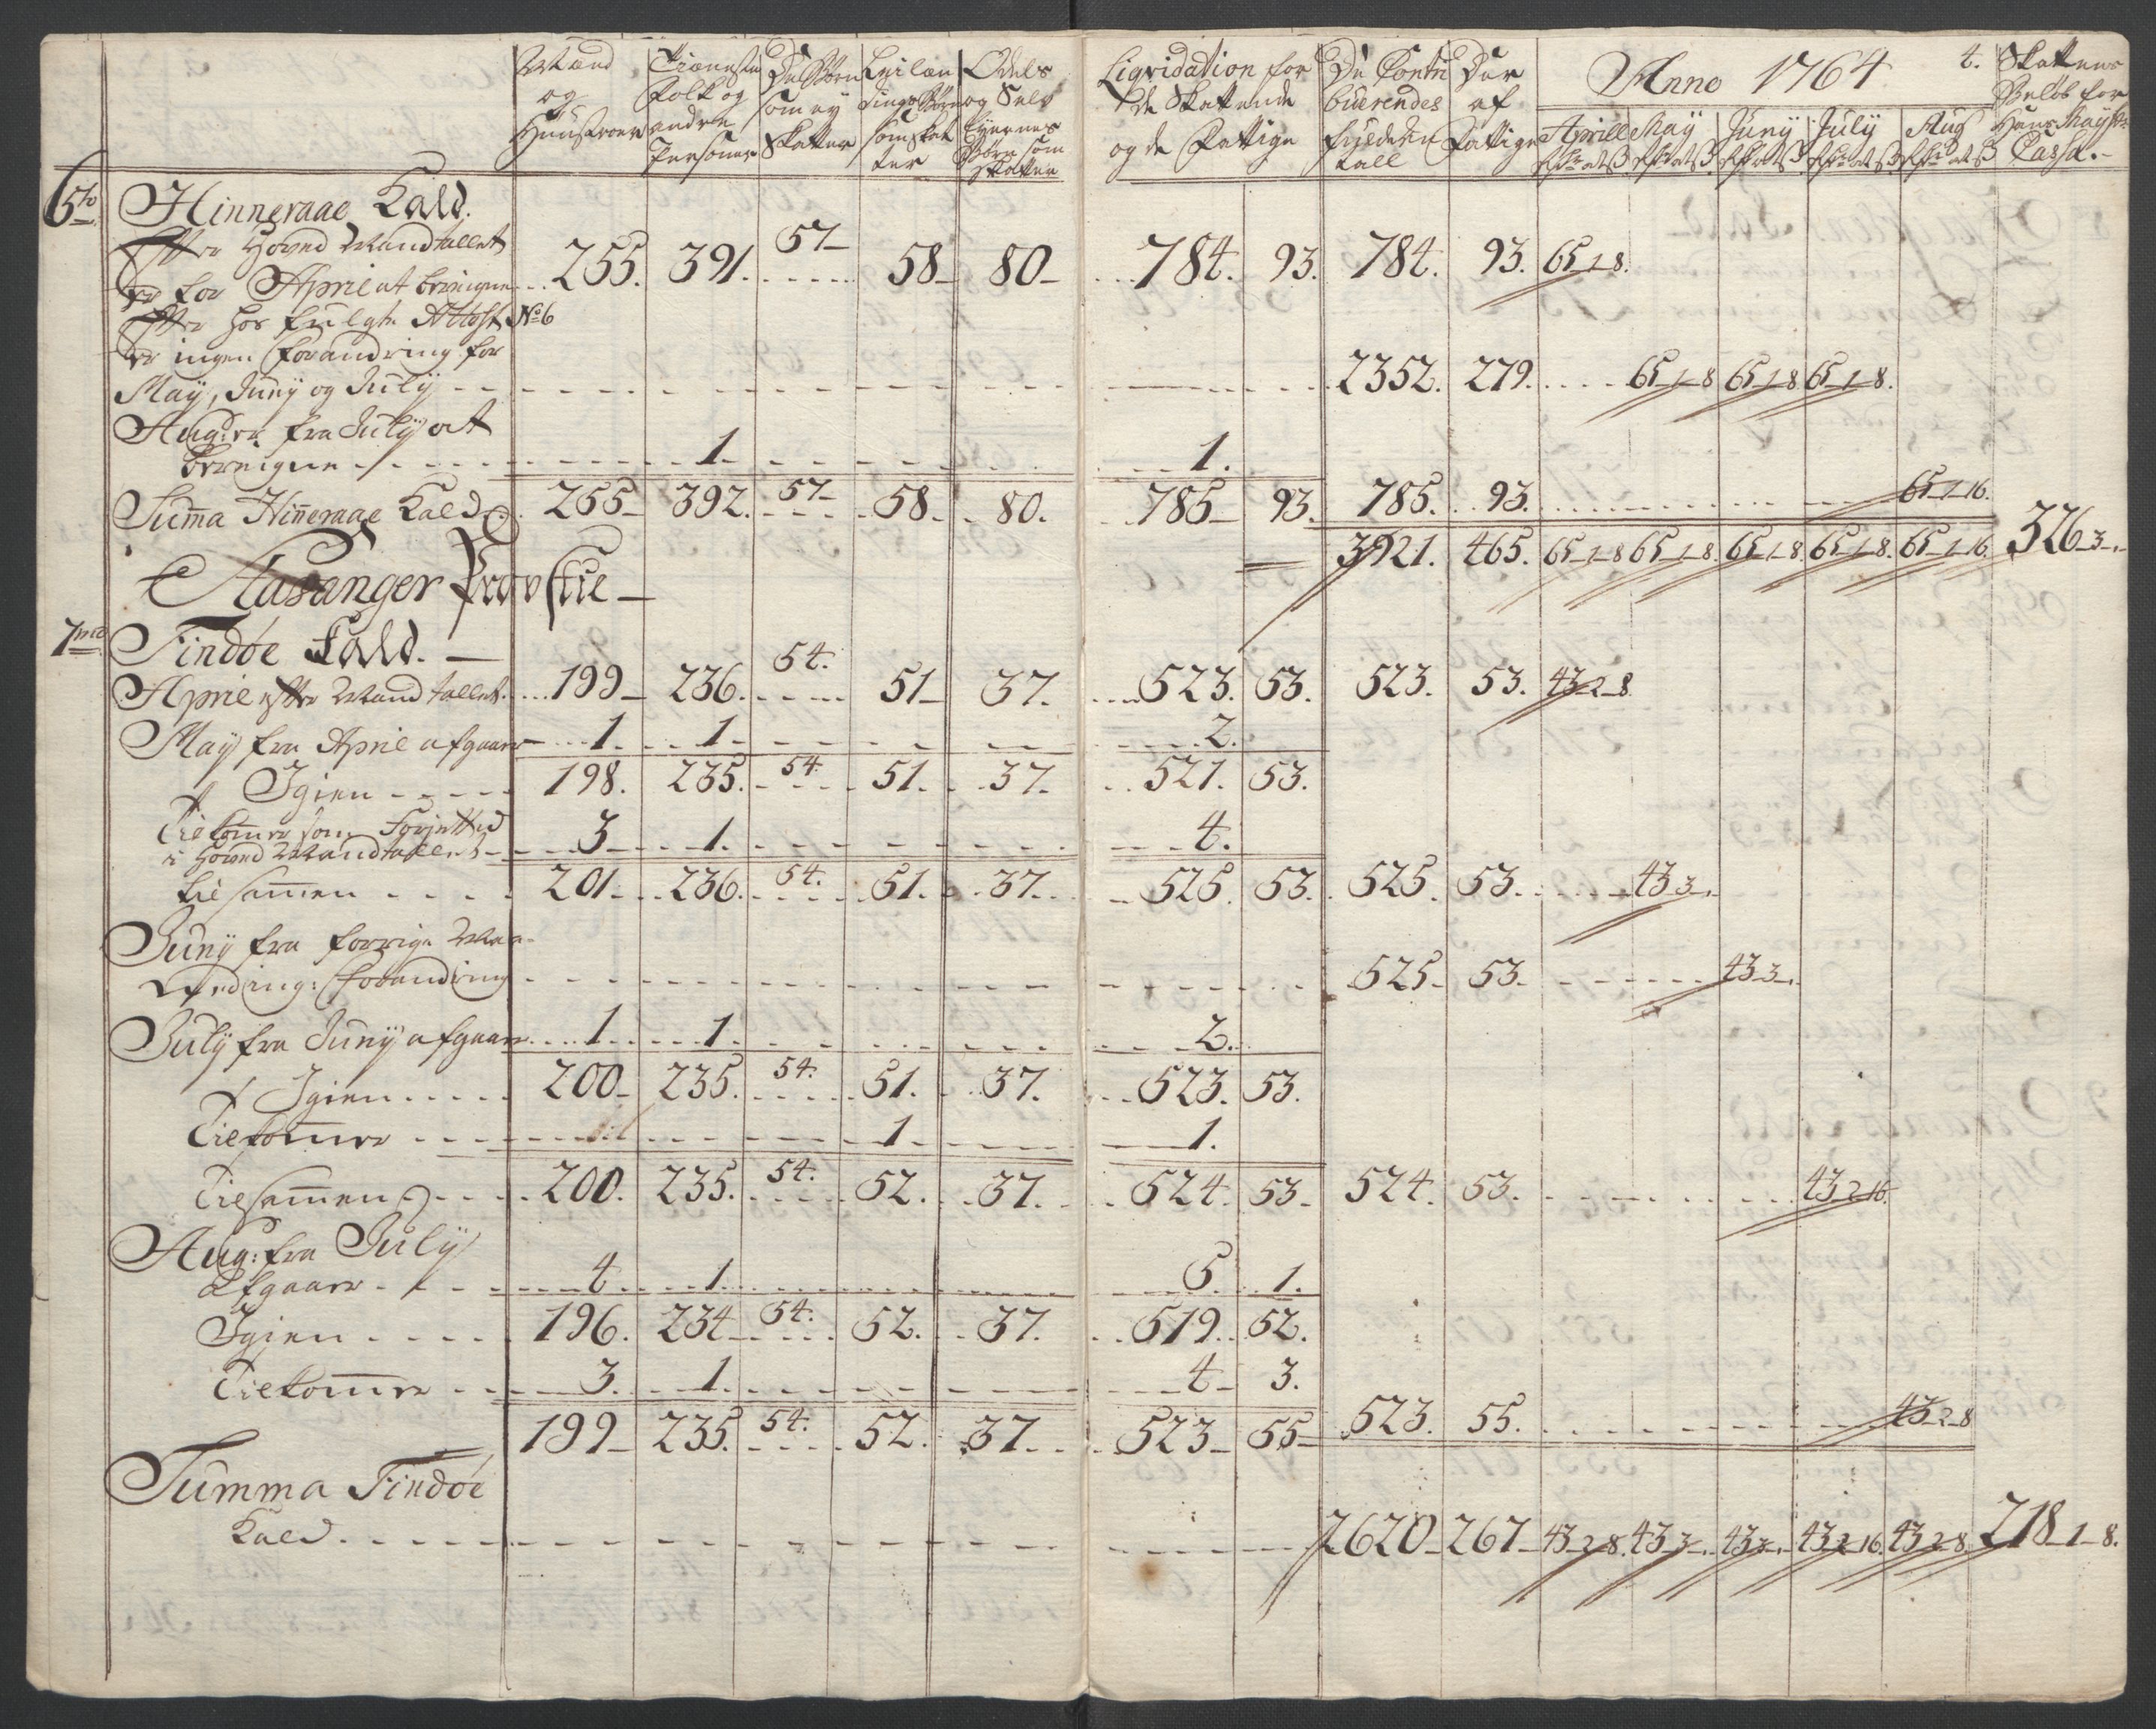 Mænd og Hustruer | Tieneste Folk og andre Personer | De Børn som ey Skatter | Leilændings Børn som skatter | Odels og Selv Eyernes Børn som Skatter | Liqvidation for de Skattende og de Fattige | De Contribuerendes fulde Tall | Der af Fattige | Anno 1764 | 4. | Skattens Beløb for Hans Mayts Cassa.
Aprill | May | Juny | July | Aug
6te Hinneraae Kald.
Efter Hoved Mandtallet
er for April at beregne 255. 391. 57 58 80 784. 93. 784. 93. 65-1-8.
Efter hos fulgte Attest No 6
er ingen forandring for
May, Juny og July 2352. 279. 65-1-8 65-1-8 65-1-8.
Aug: er fra July at
beregne 1. 1.
Summa Hinneraae Kald 255 392. 57 58. 80. 785 93. 785. 93. 65-1-16.
3921. 465. 65-1-8 65-1-8. 65-1-8 65-1-8. 65-1-16 326-3-
Stavanger Provstie
7me Findøe Kald.
April efter Mandtallet 199 236. 54. 51 37. 523. 53. 523. 53. 43-2-8
May fra April afgaaer 1. 1. 2.
Igien 198. 235. 54. 51. 37. 521. 53.
Tilkommer som
i Hoved Mandtallet 3 1. 4.
tilsammen 201. 236. 54. 51. 37. 525. 53. 525. 53. 43-3-
Juny fra forrige Maa-
ned ing: forandring 525 53. 43-3-
July fra Juny afgaaer 1. 1. 2.
Igien 200 235. 54. 51. 37. 523. 53.
Tilkommer 1. 1.
Tilsammen 200. 235. 54. 52. 37. 524. 53 524. 53. 43-2-16.
Aug: fra July
Afgaaer 4 1. 5. 1.
Igien 196. 234 54. 52. 37. 519. 52.
Tilkommer 3. 1. 4 3.
199 235. 54. 52. 37. 523 55 523. 55. 43-2-8
Summa Findøe
Kald 2620 267 43-2-8. 43-3- 43-3- 43-2-16. 43-2-8 218-1-8.